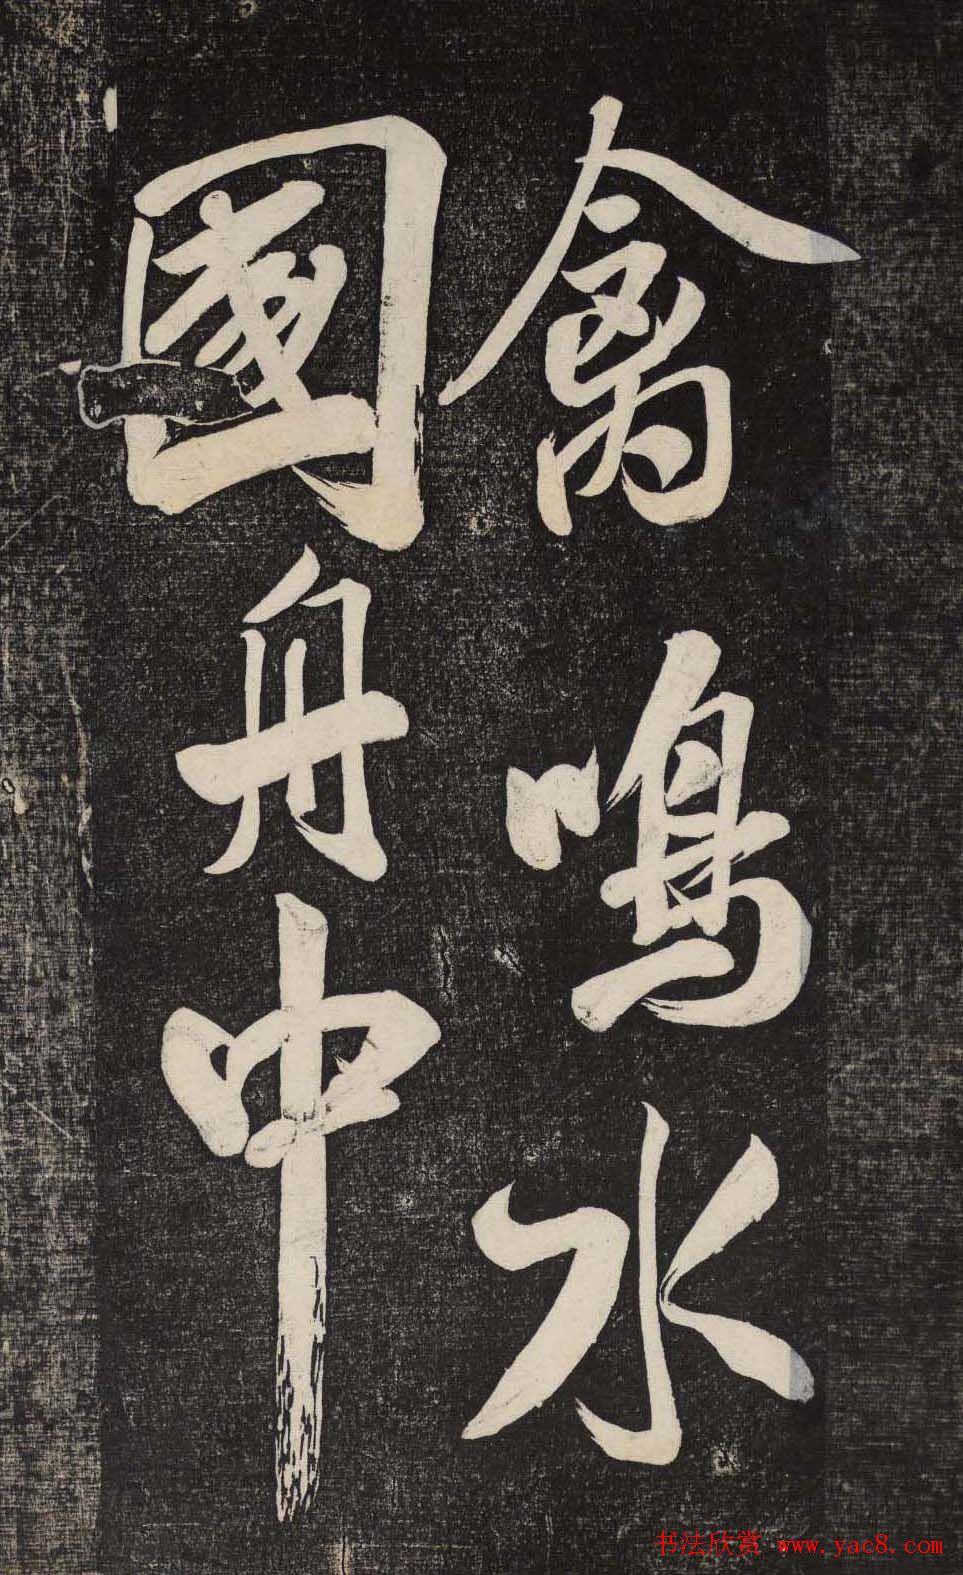 禽鳴水
國舟中
书法欣赏 www.yac8.com